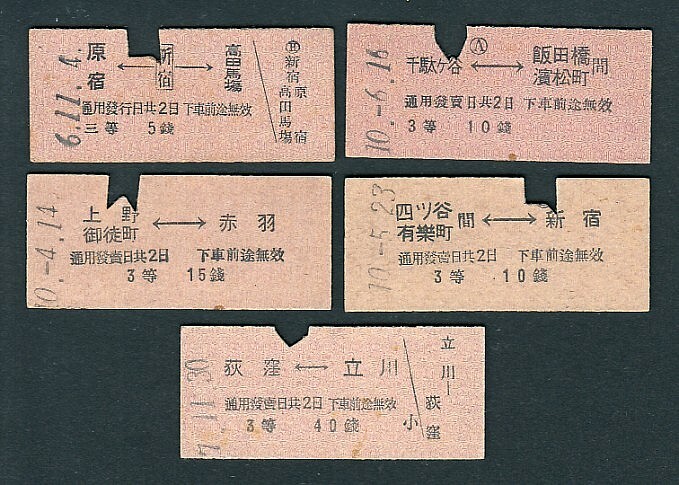 6.11.4.
原宿 ←→ 新宿 ←→ 高田馬場
通用發行日共2日 下車前途無效
三等 5錢
Ⓑ
新宿
原宿
高田馬場
10.-6.16
Ⓐ
千駄ケ谷 ←→ 飯田橋
濱松町 間
通用發賣日共2日 下車前途無效
3等 10錢
0.-4.14
上野
御徒町 ←→ 赤羽
通用發賣日共2日 下車前途無效
3等 15錢
10.-5.23
四ツ谷
有樂町 間 ←→ 新宿
通用發賣日共2日 下車前途無效
3等 10錢
11.30
荻窪 ←→ 立川
通用發賣日共2日 下車前途無效
3等 40錢
小
立川―荻窪